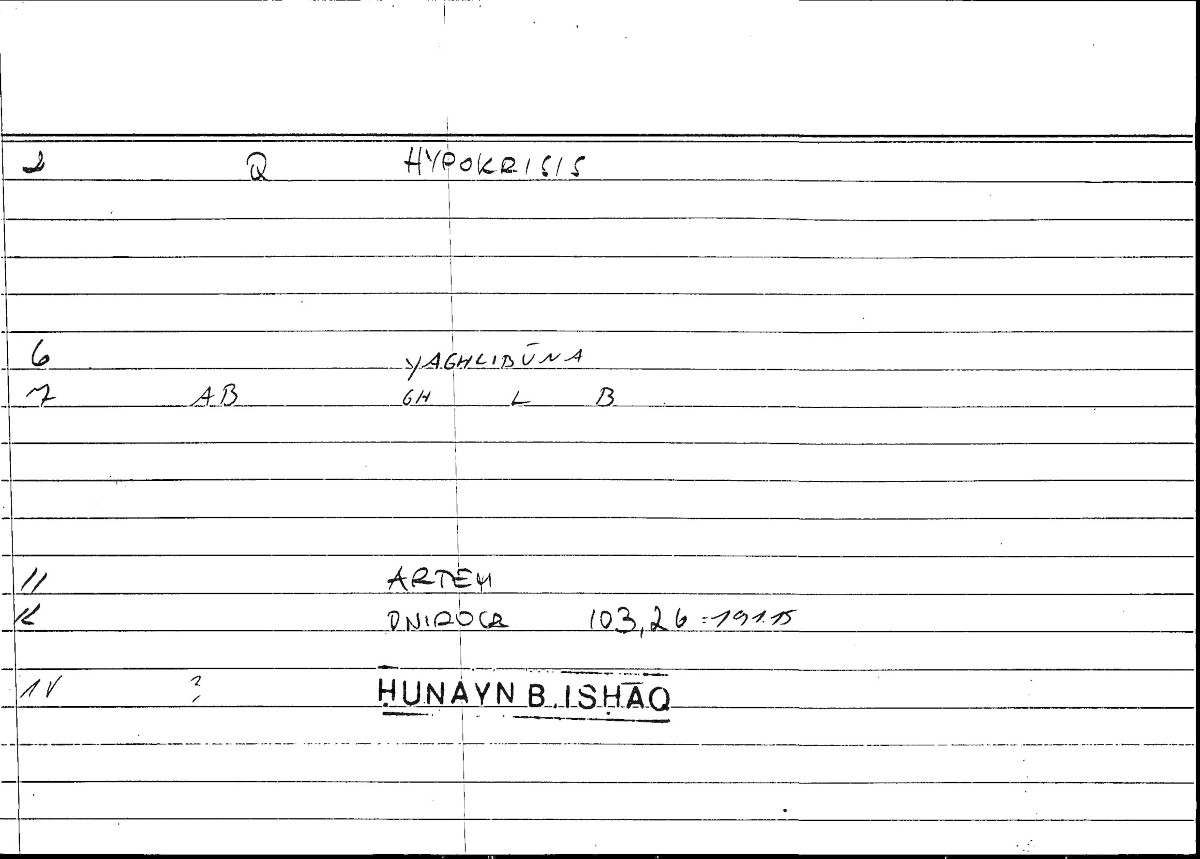 2 Q HYPOKRISIS
6 YAGHLIBŪNA
7 AB GH L B
11 ARTEM
12 ONIROCR 103,26 = 191.15
14 ? ḤUNAYN B. ISḤĀQ